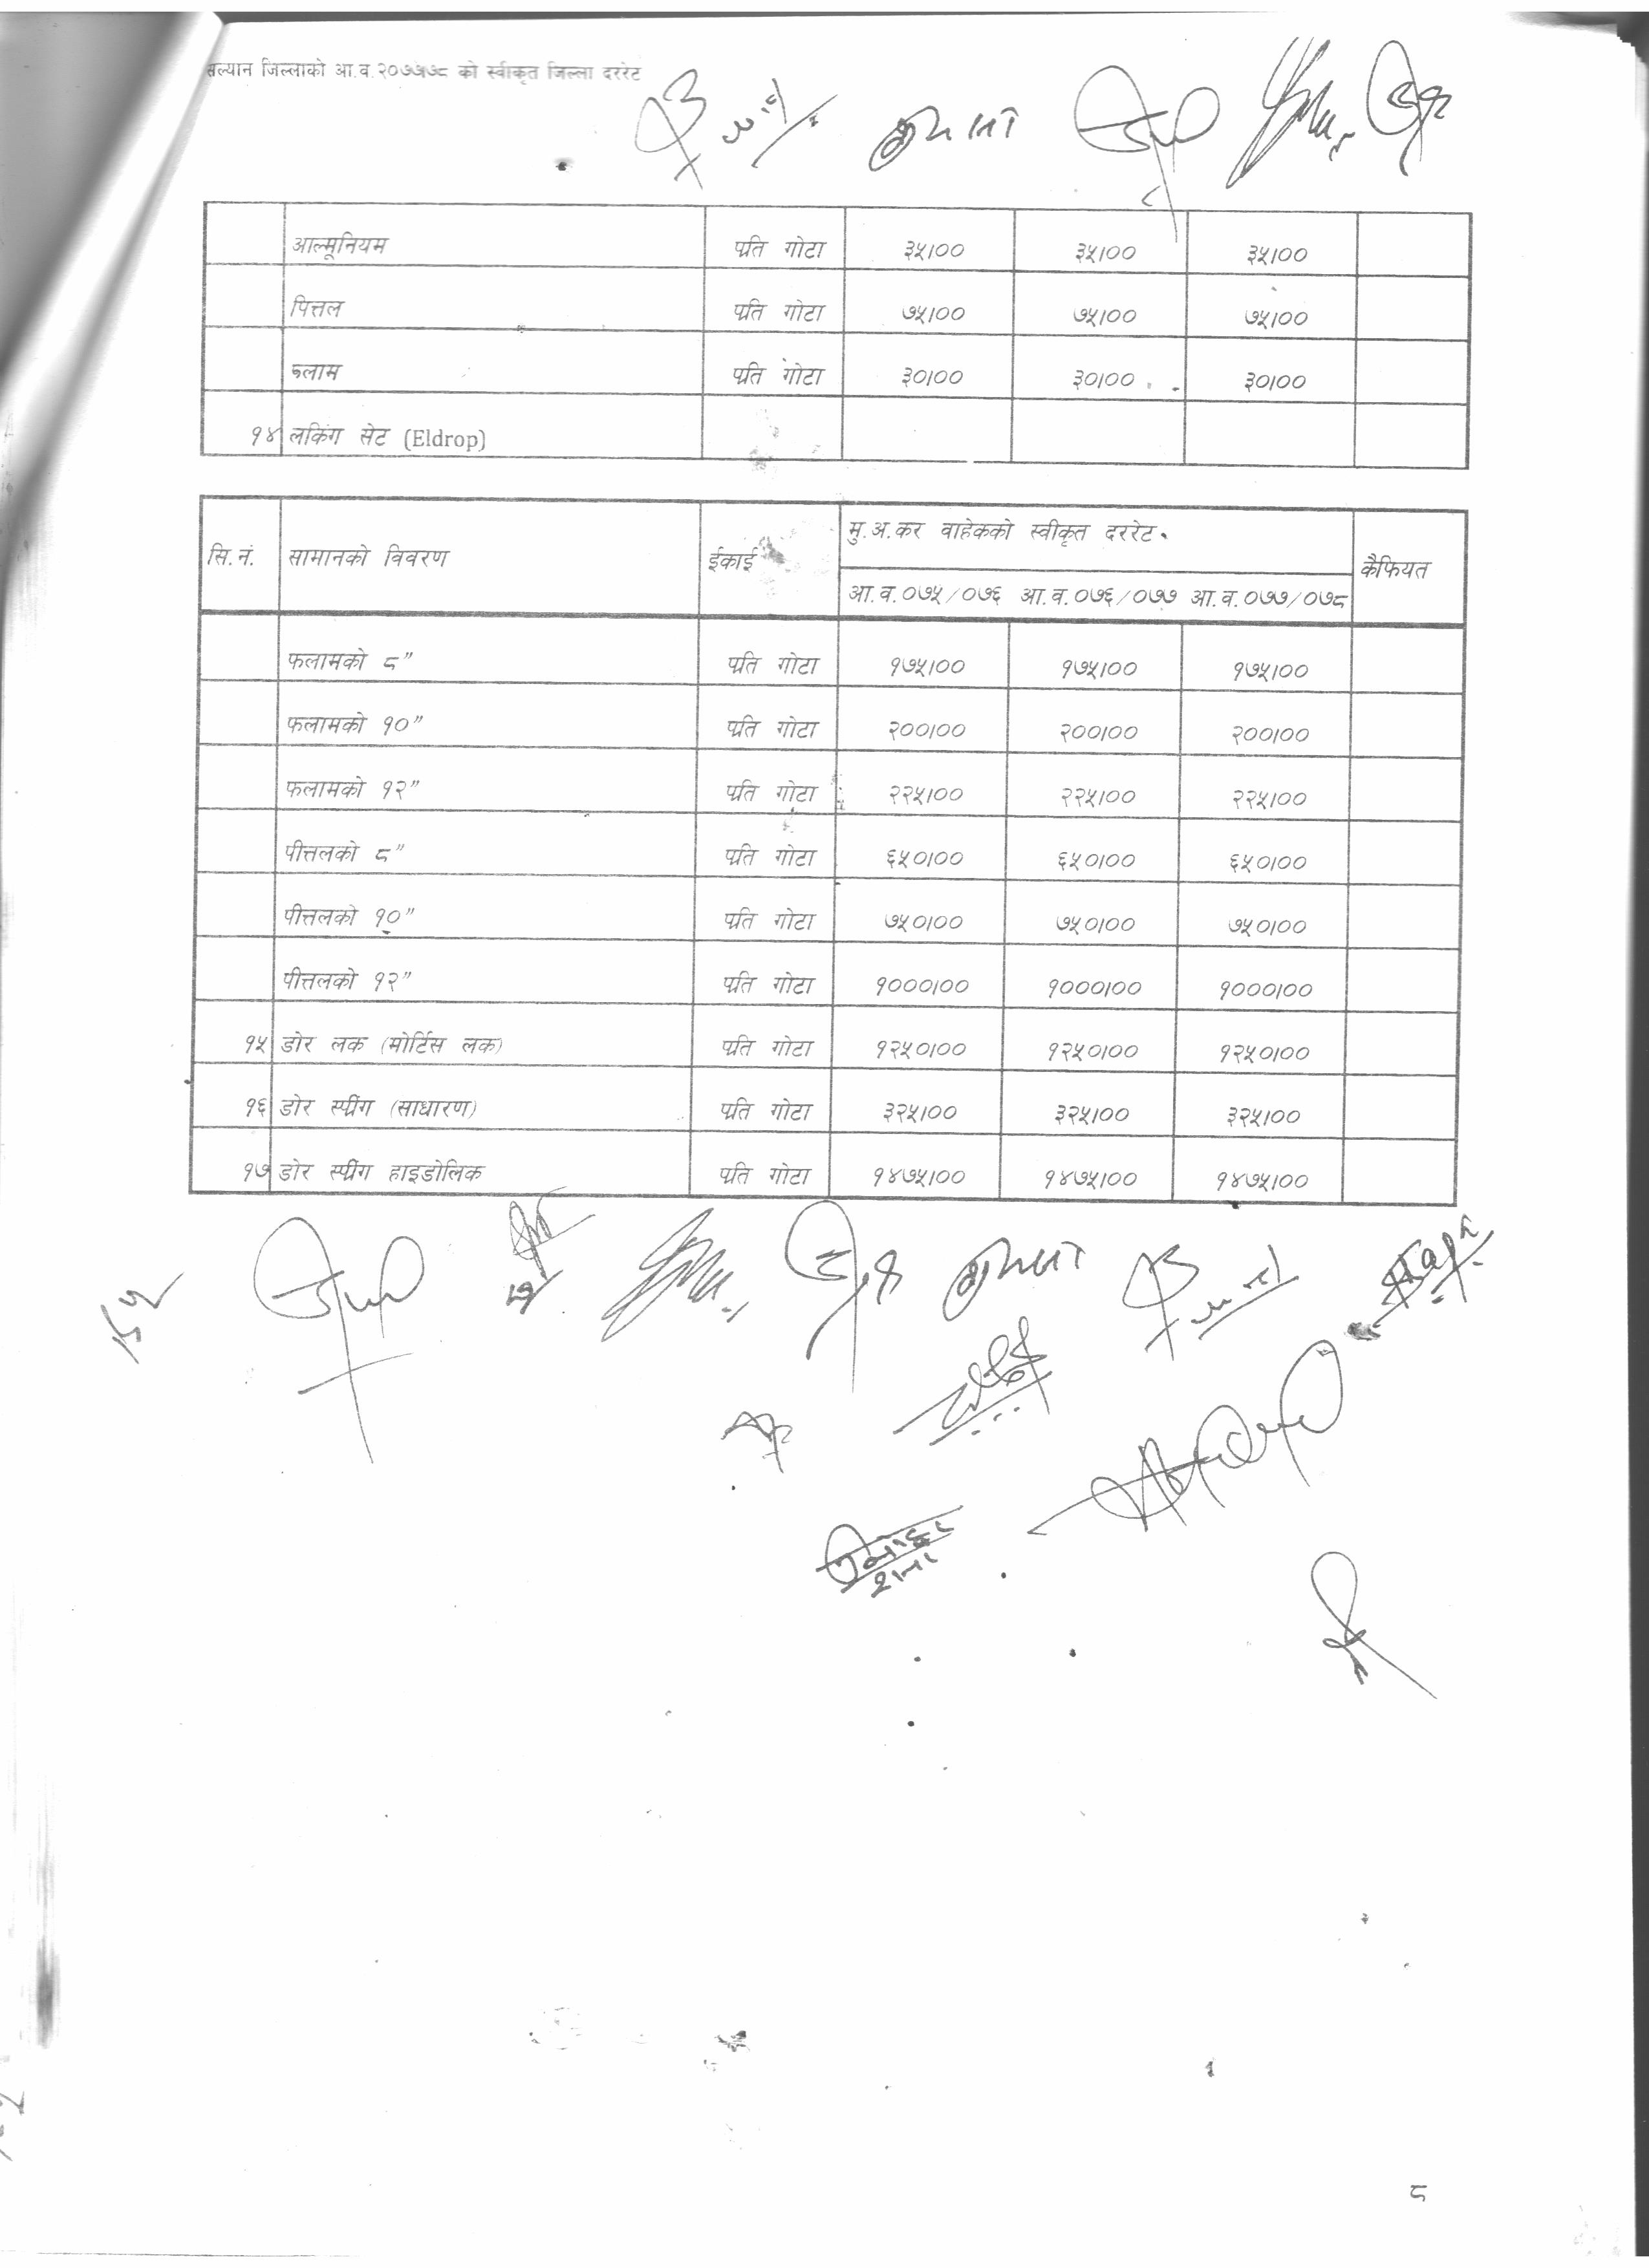 सल्यान जिल्लाको आ.व.२०७७।७८ को स्वीकृत जिल्ला दररेट
आल्मूनियम प्रति गोटा ३५।०० ३५।०० ३५।००
पित्तल प्रति गोटा ७५।०० ७५।०० ७५।००
प्रति गोटा ३०।०० ३०।०० ३०।००
१४ लकिंग सेट (Eldrop)
सि.नं. सामानको विवरण ईकाई मु.अ.कर वाहेकको स्वीकृत दररेट कैफियत
आ.व.०७५/०७६ आ.व.०७६/०७७ आ.व.०७७/०७८
फलामको ८" प्रति गोटा १७५।०० १७५।०० १७५।००
फलामको १०" प्रति गोटा २००।०० २००।०० २००।००
फलामको १२" प्रति गोटा २२५।०० २२५।०० २२५।००
पीत्तलको ८" प्रति गोटा ६५०।०० ६५०।०० ६५०।००
पीत्तलको १०" प्रति गोटा ७५०।०० ७५०।०० ७५०।००
पीत्तलको १२" प्रति गोटा १०००।०० १०००।०० १०००।००
१५ डोर लक (मोर्टिस लक) प्रति गोटा १२५०।०० १२५०।०० १२५०।००
१६ डोर स्प्रींग (साधारण) प्रति गोटा ३२५।०० ३२५।०० ३२५।००
१७ डोर स्प्रींग हाइडोलिक प्रति गोटा १४७५।०० १४७५।०० १४७५।००
८